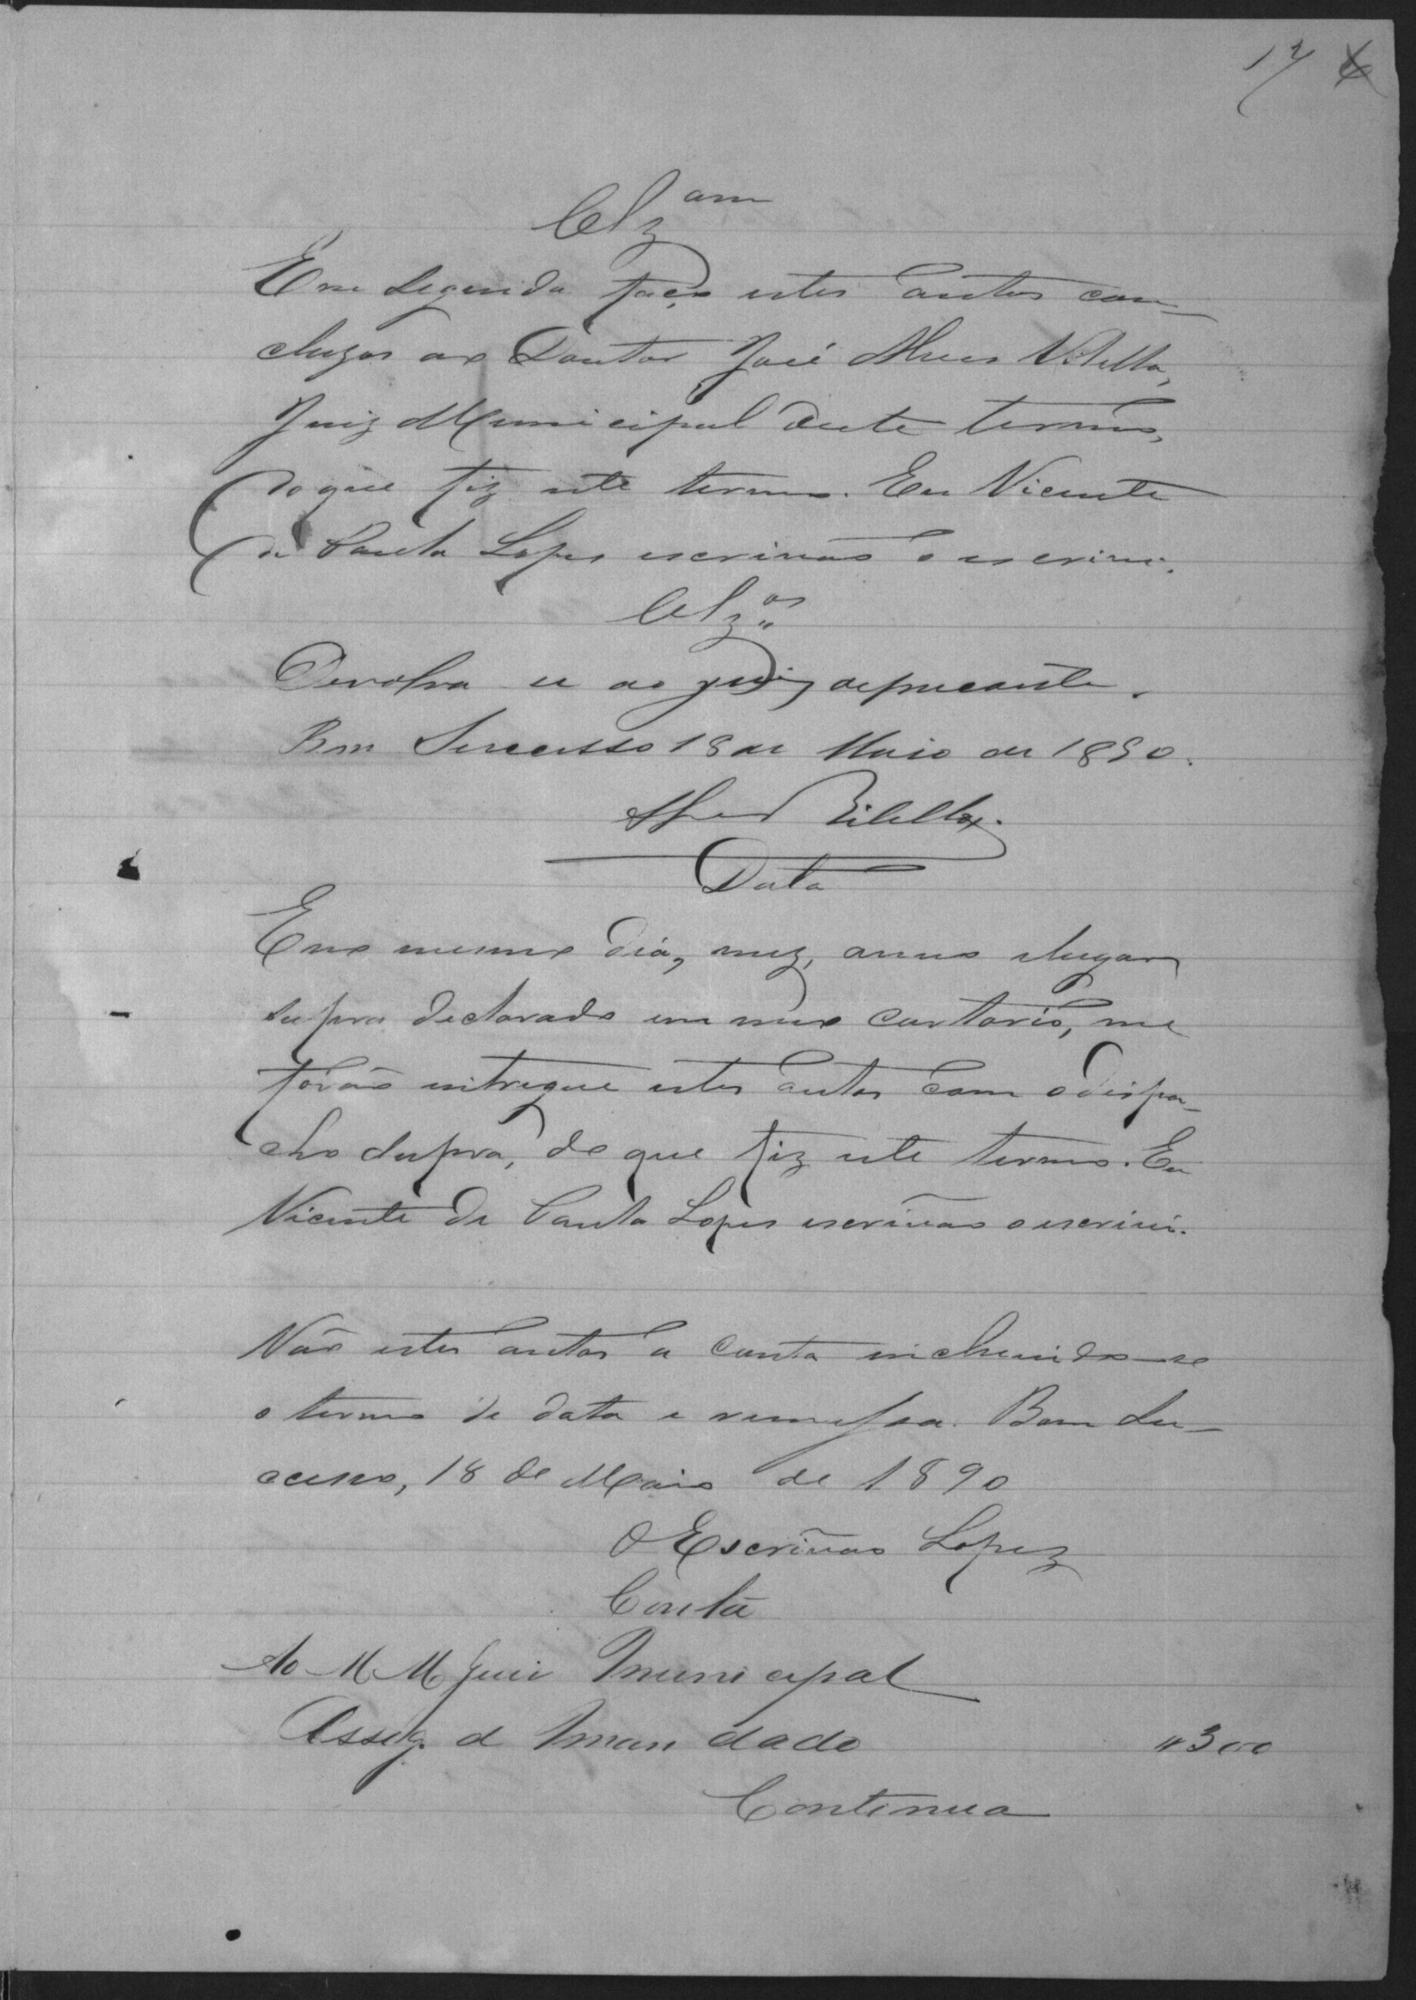 17
Clz am
Em seguida faço estes autos con-
cluzos ao Doutor José Alves Vilella,
Juiz Municipal deste termo,
do que fiz este termo. Eu Vicente
de Paula Lopes escrivão o escrivi.
Clz os
Devolva se ao juiz deprecante.
Bom Successo 18 de Maio de 1890.
Alves Vilella.
Data
E no mesmo dia, mez, anno e lugar
supra declarado em meo cartorio, me
forão entregue estes autos com o dispa-
cho supra, do que fiz este termo. Eu
Vicente de Paula Lopes escrivão o escrivi.
Vão estes autos a conta incluindo-se
o termo de data e remessa. Bom Su-
ccesso, 18 de Maio de 1890
O Escrivão Lopez
Conta
Ao M M Juiz Municipal
Assig. d mandado "300
Continua